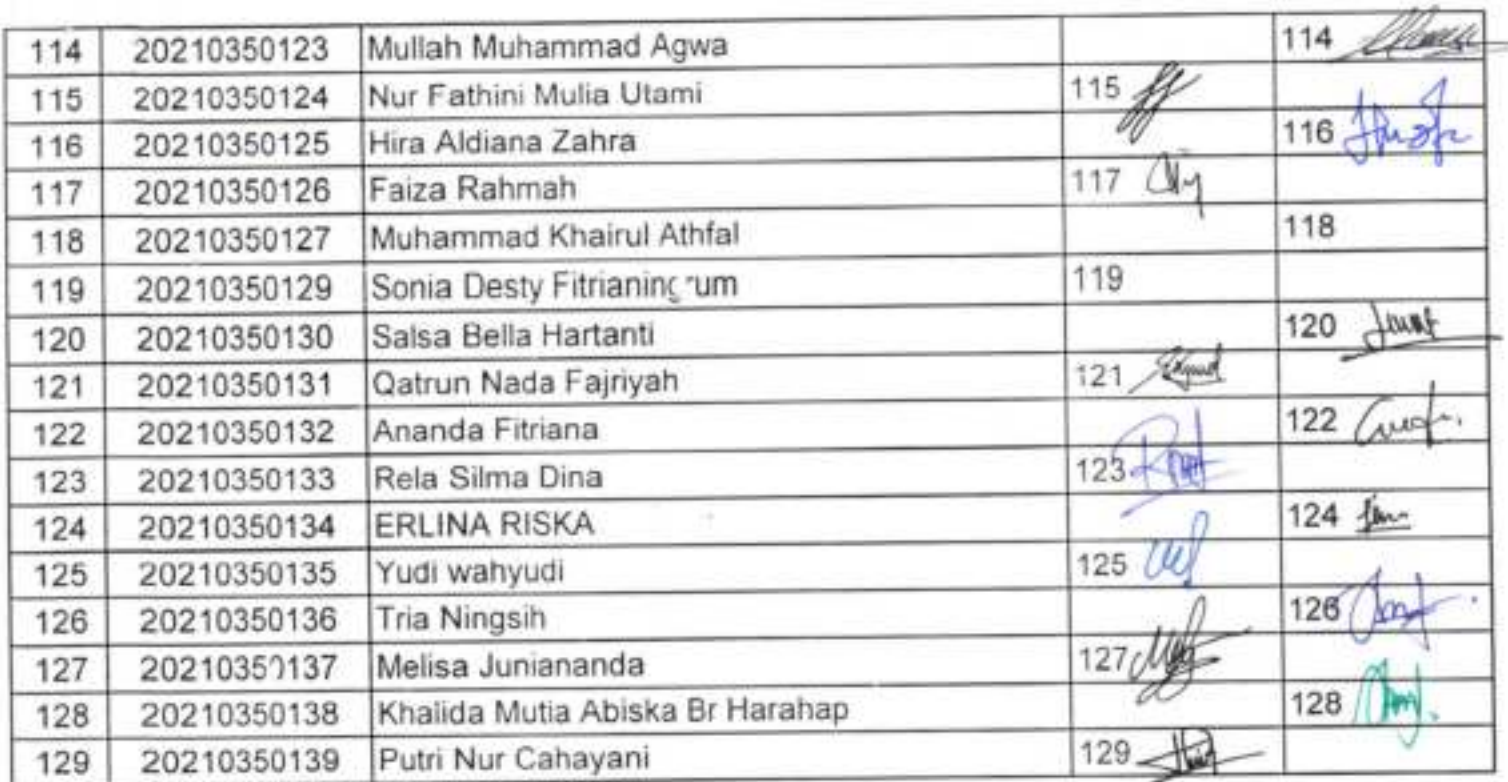 114 20210350123 Mullah Muhammad Agwa 114
115 20210350124 Nur Fathini Mulia Utami 115
116 20210350125 Hira Aldiana Zahra 116
117 20210350126 Faiza Rahmah 117
118 20210350127 Muhammad Khairul Athfal 118
119 20210350129 Sonia Desty Fitrianingrum 119
120 20210350130 Salsa Bella Hartanti 120
121 20210350131 Qatrun Nada Fajriyah 121
122 20210350132 Ananda Fitriana 122
123 20210350133 Rela Silma Dina 123
124 20210350134 ERLINA RISKA 124
125 20210350135 Yudi wahyudi 125
126 20210350136 Tria Ningsih 126
127 20210350137 Melisa Juniananda 127
128 20210350138 Khalida Mutia Abiska Br Harahap 128
129 20210350139 Putri Nur Cahayani 129